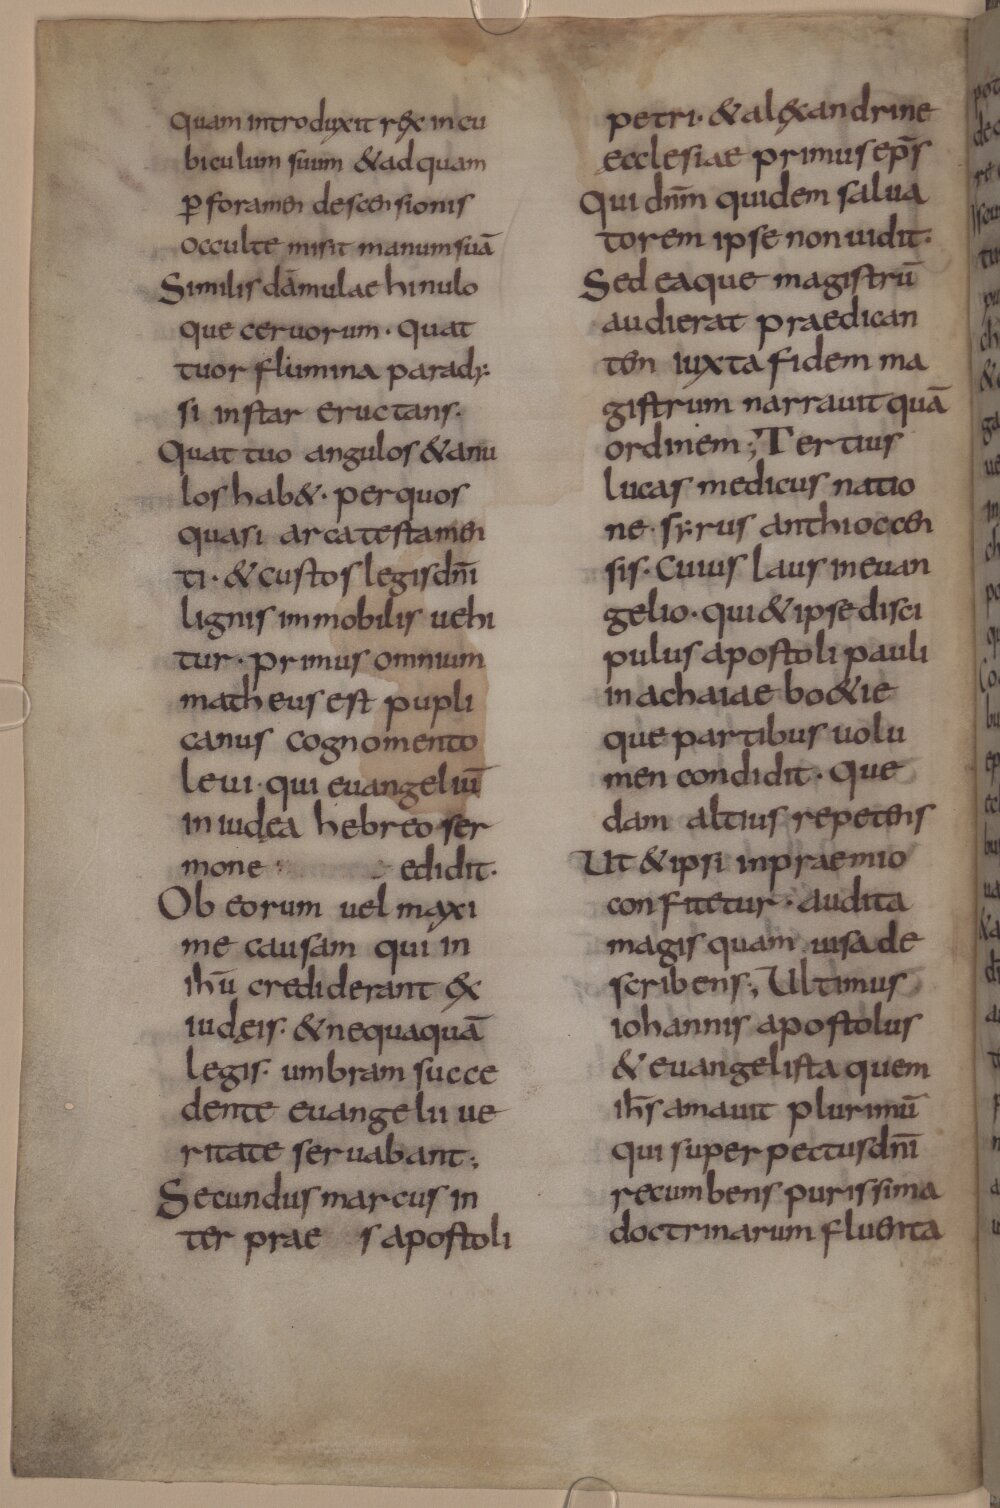 quam introduxit rex in cu
biculum suum & ad quam
ꝑ foramen descensionis
occulte misit manum suā
Similis dāmulae hinulo
que ceruorum · quat
tuor flumina parady·
si instar eructans·
Quattuo angulos & anu
los hab&· per quos
quasi arca testamen
ti· & custos legis dn̄i
lignis immobilis uehi
tur · primus omnium
matheus est pupli
canus cognomento
leui· qui euangeliū
in iudęa hebreo ser
mone edidit·
Ob eorum uel maxi
me causam qui in
ih̄u crediderant ex
iudęis· & nequaquā
legis· umbram succe
dente euangelii ue
ritate seruabant·,
Secundus marcus in
ter prae s apostoli
petri· & alexandrine
ecclesiae primus ep̄s
Qui dn̄m quidem salua
torem ipse non uidit·
Sed eaque magistrū
audierat praedican
ten iuxta fidem ma
gistrum narrauit quā
ordinem·, Tertius
lucas medicus natio
ne · syrus anthiocen
sis· cuius laus in euan
gelio· qui & ipse disci
pulus apostoli pauli
in achaiae bo&ie
que partibus uolu
men condidit· que
dam altius repetens
Ut & ipsi in praemio
confitetur · audita
magis quam uisa de
scribens·, Ultimus
iohannis apostolus
& euangelista quem
ih̄s amauit plurimū
qui super pectus dn̄i
recumbens purissima
doctrinarum fluenta